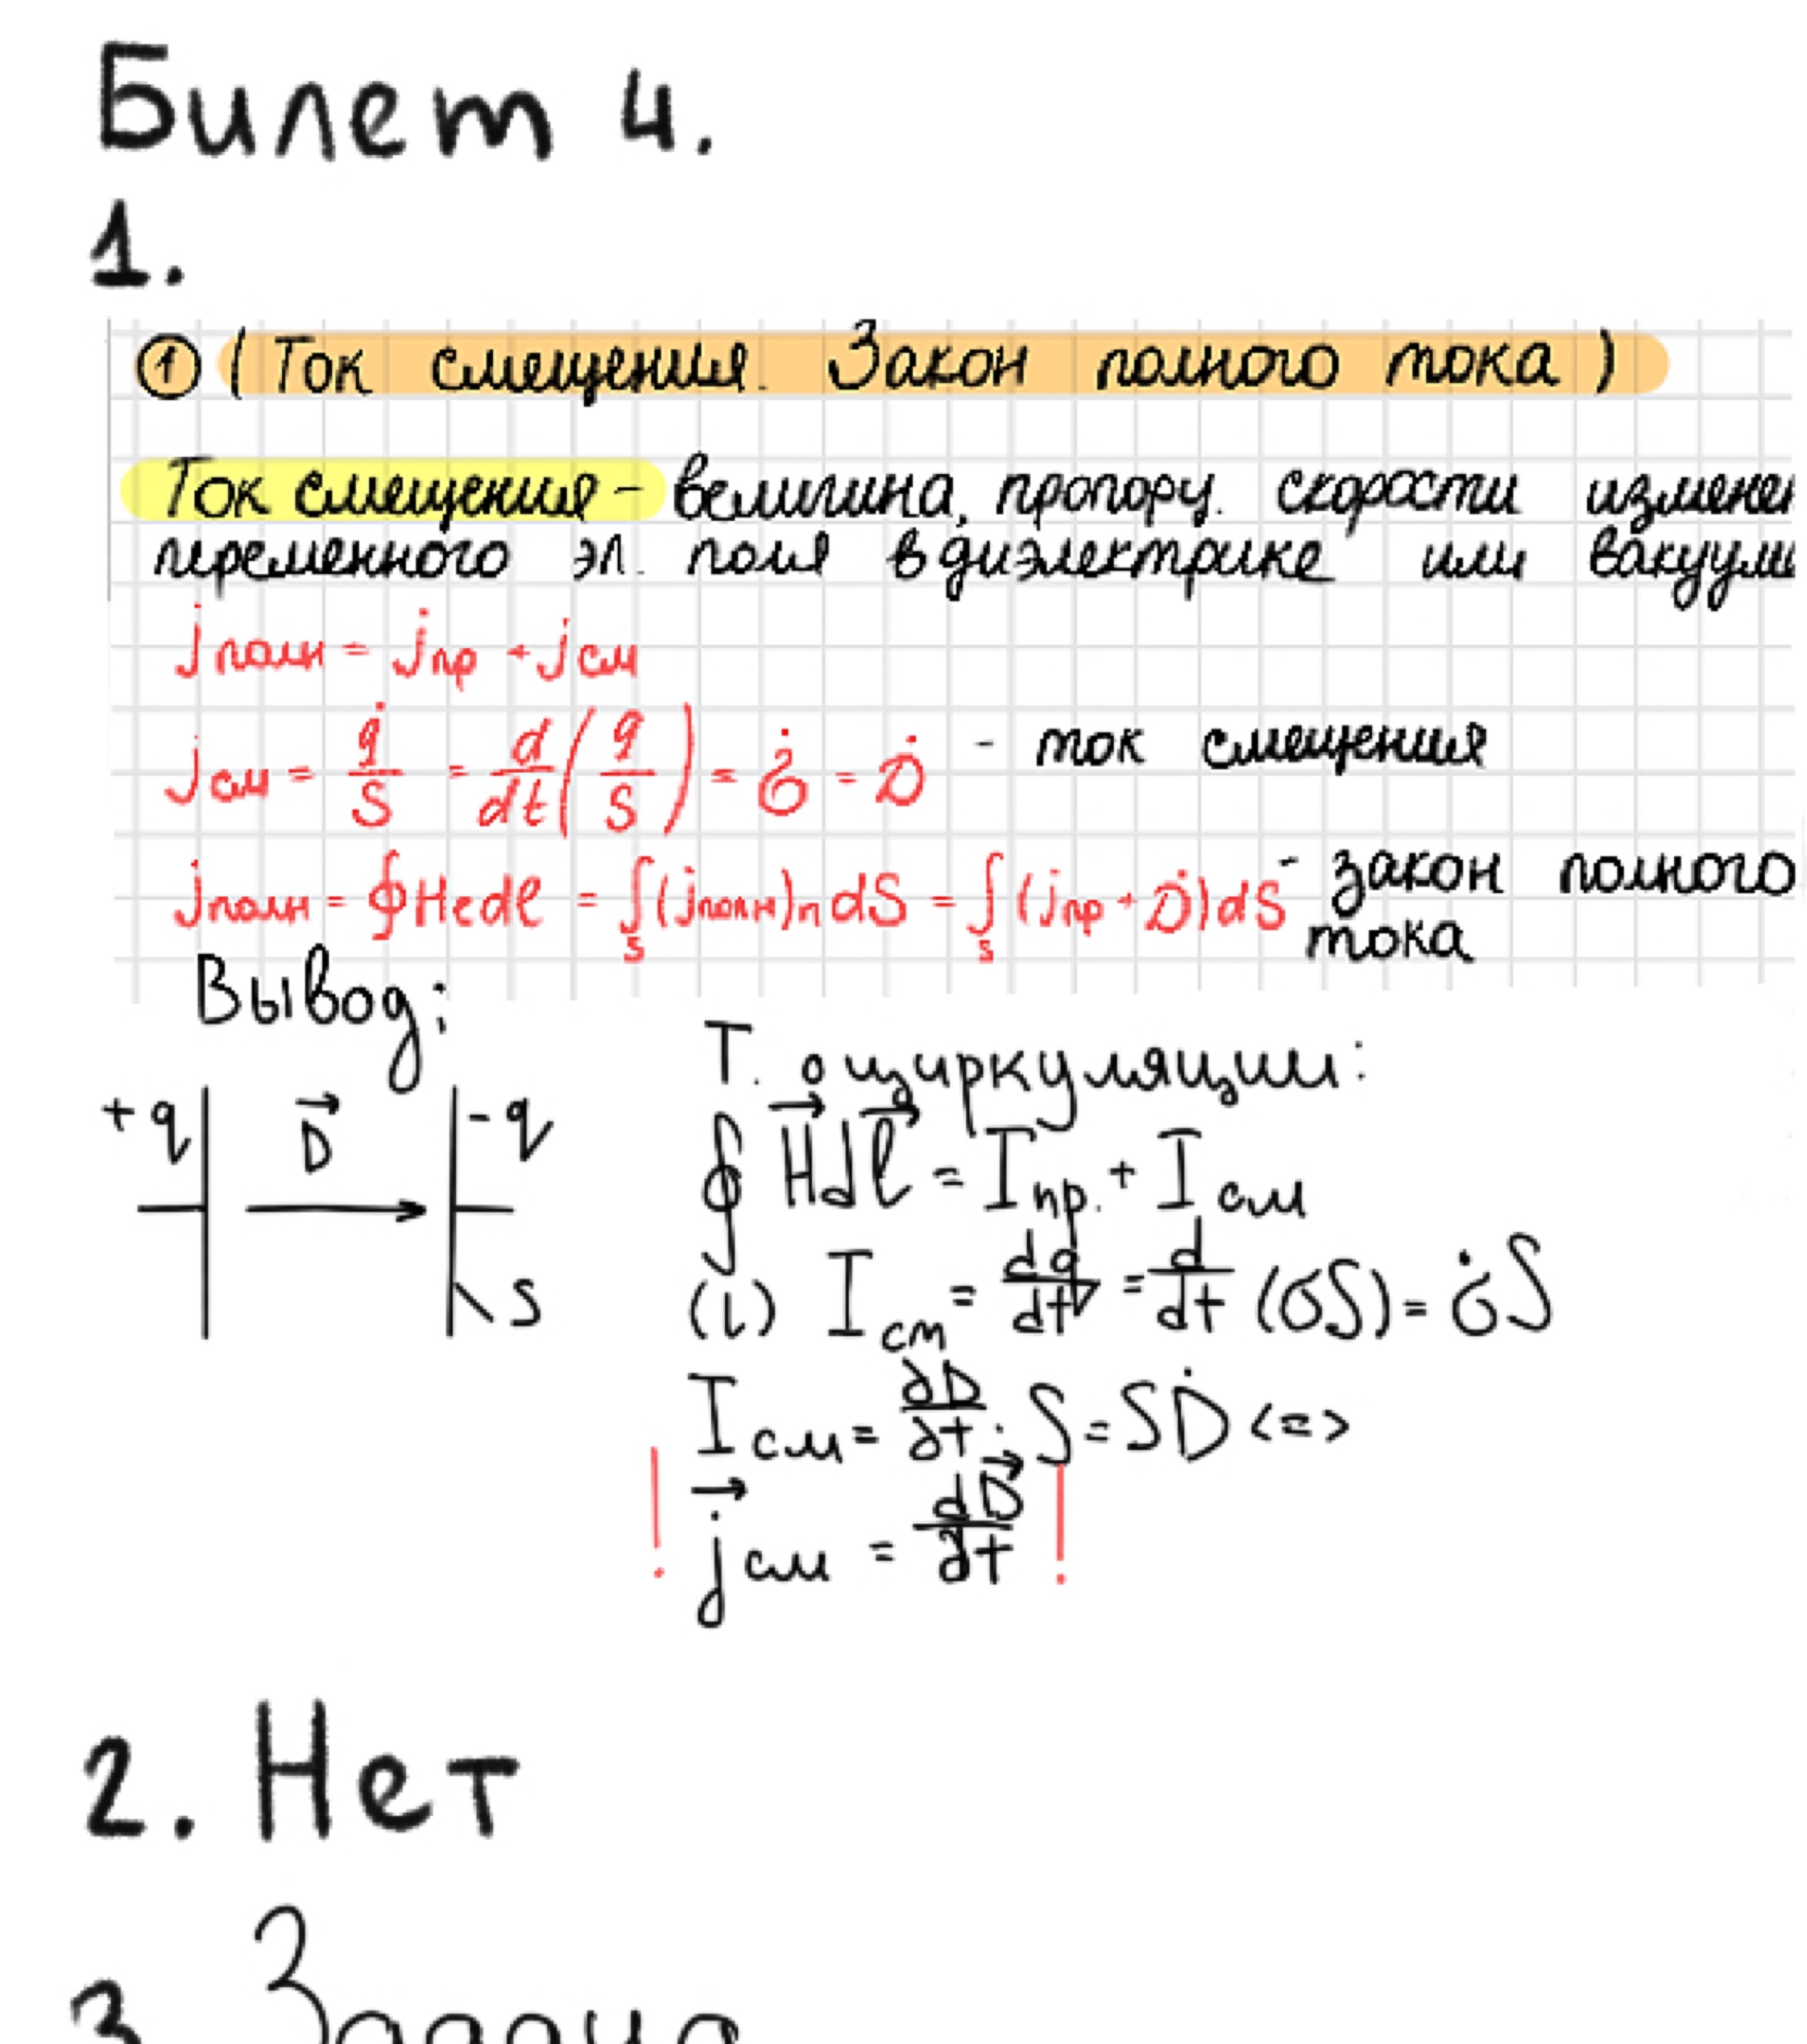 Билет 4.
1.
① (Ток смещения. Закон полного тока)
Ток смещения - величина, пропорц. скорости изменен
переменного эл. поля в диэлектрике или вакууме
jполн = jпр + jсм
jсм = q̇/S = d/dt(q/S) = σ̇ = Ḋ - ток смещения
jполн = ∮Hedl = ∫S(jполн)n dS = ∫S(jпр + Ḋ)dS - закон полного
тока
Вывод:
+q D⃗ -q
S
Т. о циркуляции:
∮ H⃗dl⃗ = Iпр. + Iсм
(L) Iсм = dq/dt = d/dt (σS) = σ̇S
Iсм = ∂D/∂t · S = SḊ <=>
! j⃗см = ∂D⃗/∂t !
2. Нет
3. Задача